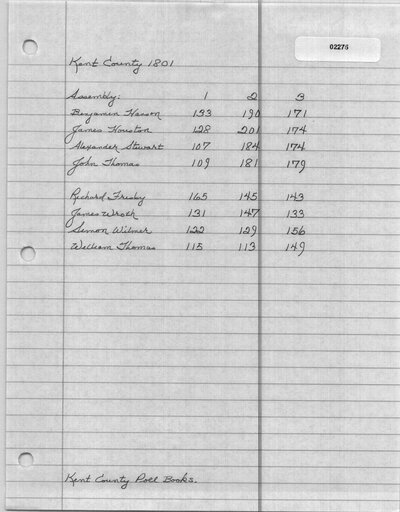 02276
Kent County 1801
Assembly: 1 2 3
Benjamin Hanson 133 190 171
James Houston 128 201 174
Alexander Stewart 107 184 174
John Thomas 109 181 179
Richard Frisby 165 145 143
James Wroth 131 147 133
Simon Wilmer 122 129 156
William Thomas 115 113 149
Kent County Poll Books.